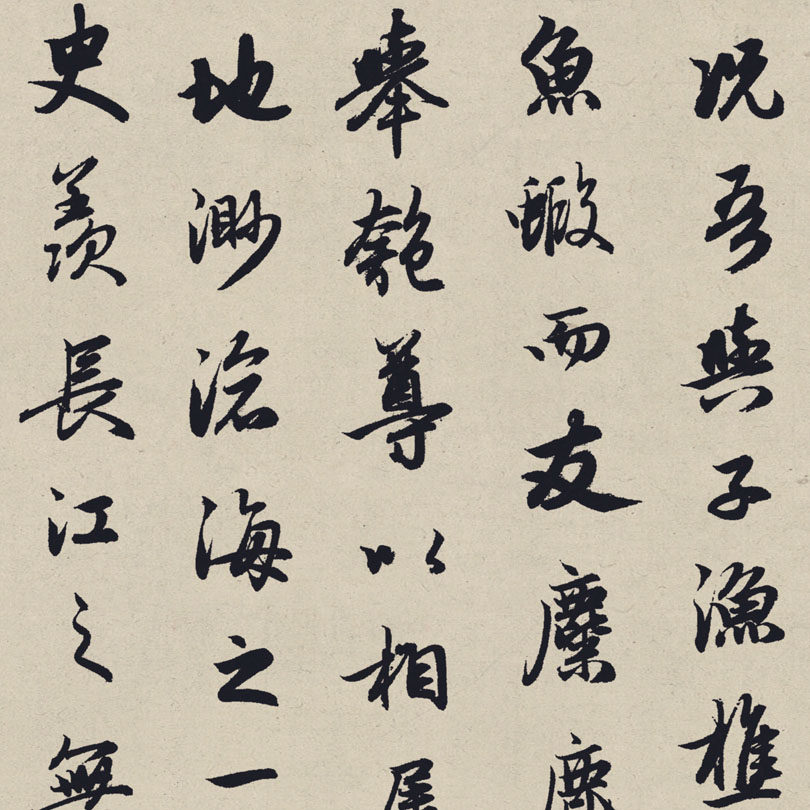 況吾與子漁樵
魚蝦而友麋鹿
舉匏尊以相屬
地渺滄海之一
臾羨長江之無